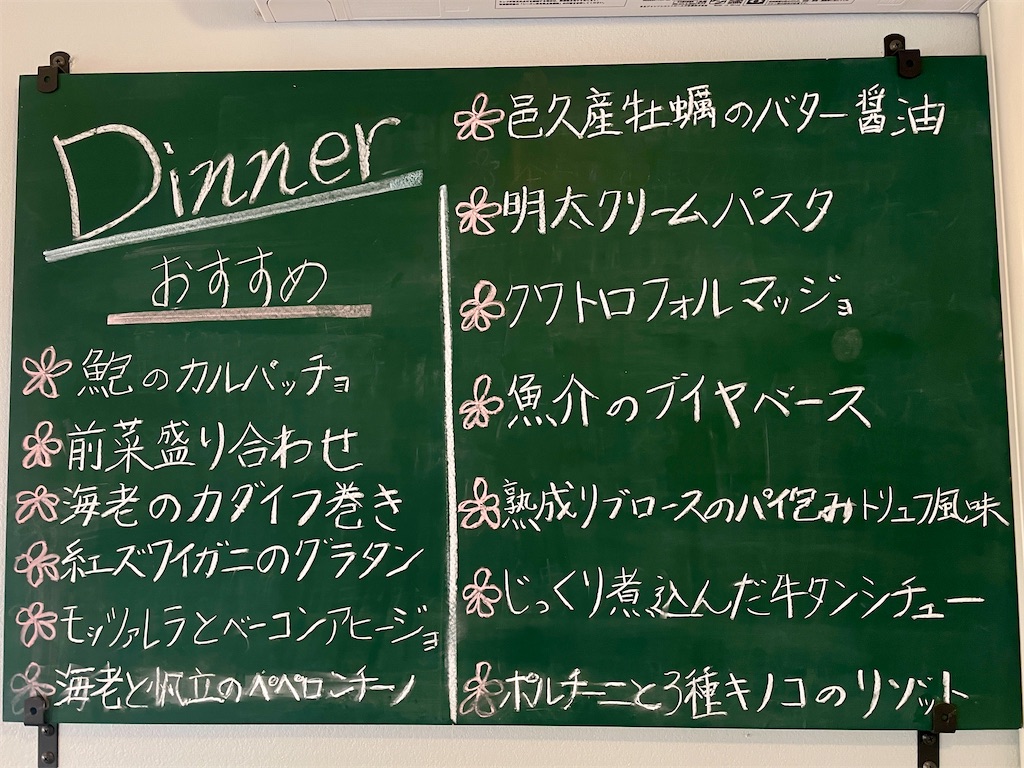 Dinner
おすすめ
鮑のカルパッチョ
前菜盛り合わせ
海老のカダイフ巻き
紅ズワイガニのグラタン
モッツァレラとベーコンアヒージョ
海老と帆立のペペロンチーノ
邑久産牡蠣のバター醤油
明太クリームパスタ
クワトロフォルマッジョ
魚介のブイヤベース
熟成リブロースのパイ包みトリュフ風味
じっくり煮込んだ牛タンシチュー
ポルチーニと3種キノコのリゾット